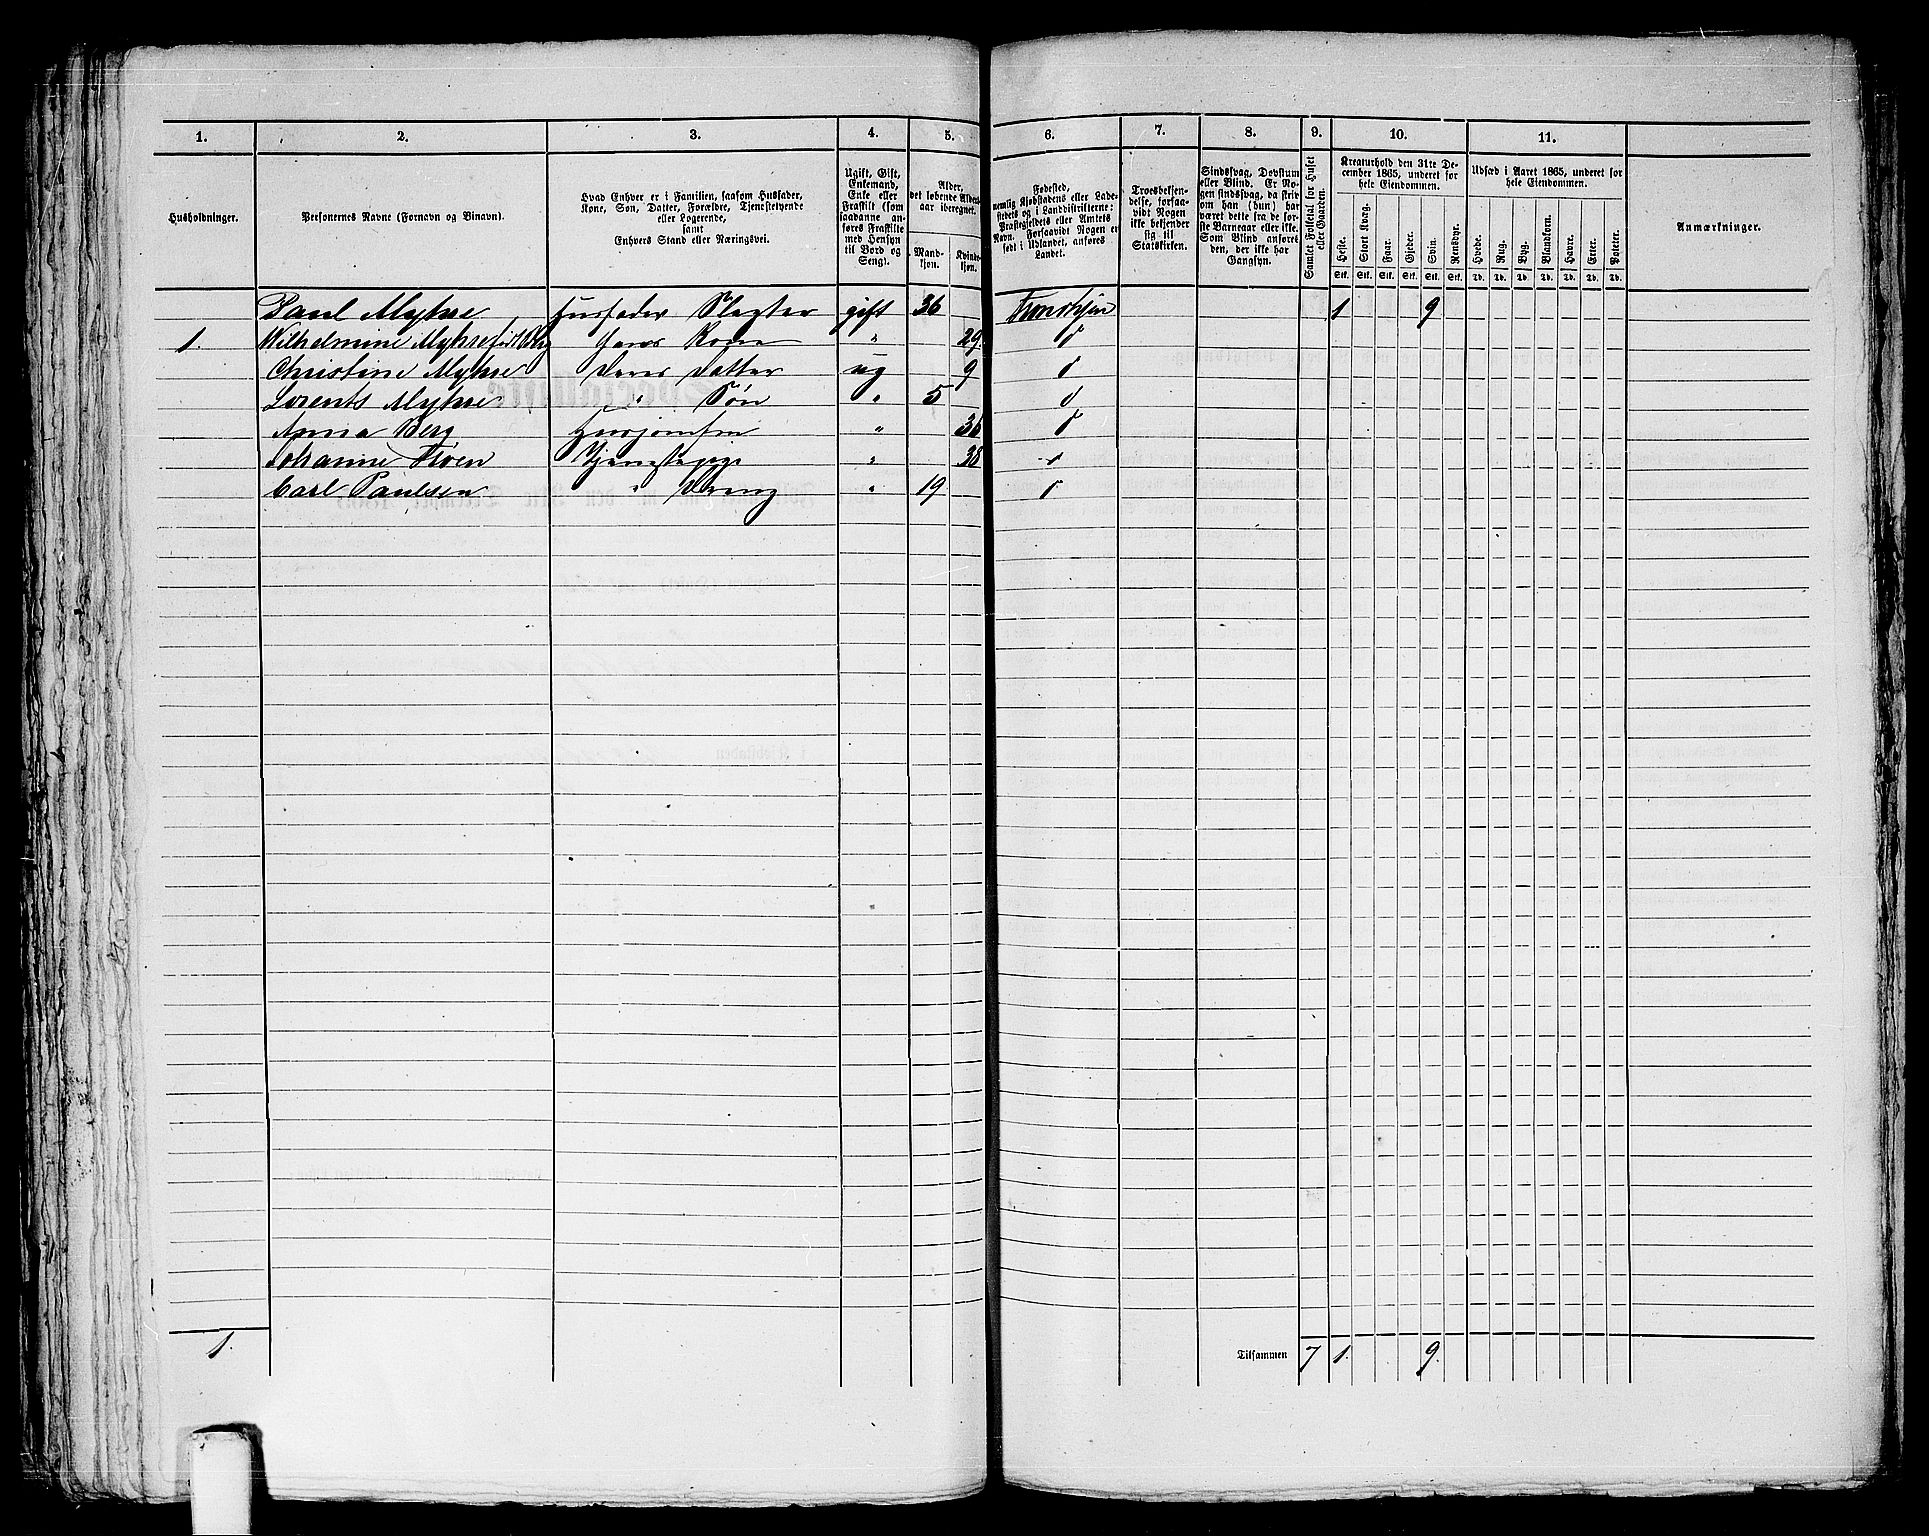 1. 2. 3. 4. 5. 6. 7. 8. 9. 10. 11.
Husholdninger.
Personernes Navne (Fornavn og Binavn).
Hvad Enhver er i Familien, saasom Husfader,
Kone, Søn, Datter, Forældre, Tjenestetyende
eller Logerende,
samt
Enhvers Stand eller Næringsvei.
Ugift, Gift,
Enkemand,
Enke eller
Fraskilt (som
saadanne an-
føres Fraskilte
med Hensyn
til Bord og
Seng).
Alder,
det løbende Alders-
aar iberegnet.
Mand-
kjøn.
Kvinde-
kjøn.
Fødested,
nemlig Kjøbstadens eller Lade-
stedets og i Landdistrikterne:
Præstegjeldets eller Amtets
Navn. Forsaavidt Nogen er
født i Udlandet, anføres
Landet.
Troesbekjen-
delse, forsaa-
vidt Nogen
ikke bekjender
sig til
Statskirken.
Sindssvag, Døvstum
eller Blind. Er No-
gen sindssvag, da skriv
om han (hun) har
været dette fra de før-
ste Barneaar eller ikke.
Som Blind anføres
den, der ikke har
Gangsyn.
Samlet Folketal for Huset
eller Gaarden.
Kreaturhold den 31te De-
cember 1865, underet for
hele Eiendommen.
Heste. Stort Kvæg. Faar. Gjeder. Svin. Rensdyr.
Stk. Stk. Stk. Stk. Stk. Stk.
Udsæd i Aaret 1865, underet for
hele Eiendommen.
Hvede. Rug. Byg. Blandkorn. Havre. Erter. Poteter.
Td. Td. Td. Td. Td. Td. Td.
Anmærkninger.
Paul Myhre Husfader Slagter gift 36 Trondhjem 1 9
1. Wilhelmine Myhre født Berg hans Kone " 29. d
Christine Myhre deres Datter ug 9 d
Lorents Myhre " Søn " 5 d
Anna Berg Huusjomfru " 36 d
Johanne Tverr Tjenestepige " 38 d
Carl Paulsen " Dreng " 19 d
1. Tilsammen 7 1. 9.